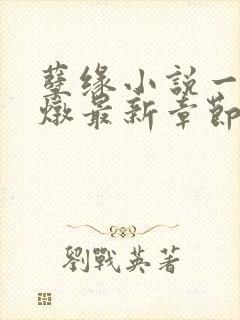 孽缘小説一
燉最新章節
劉戰英著